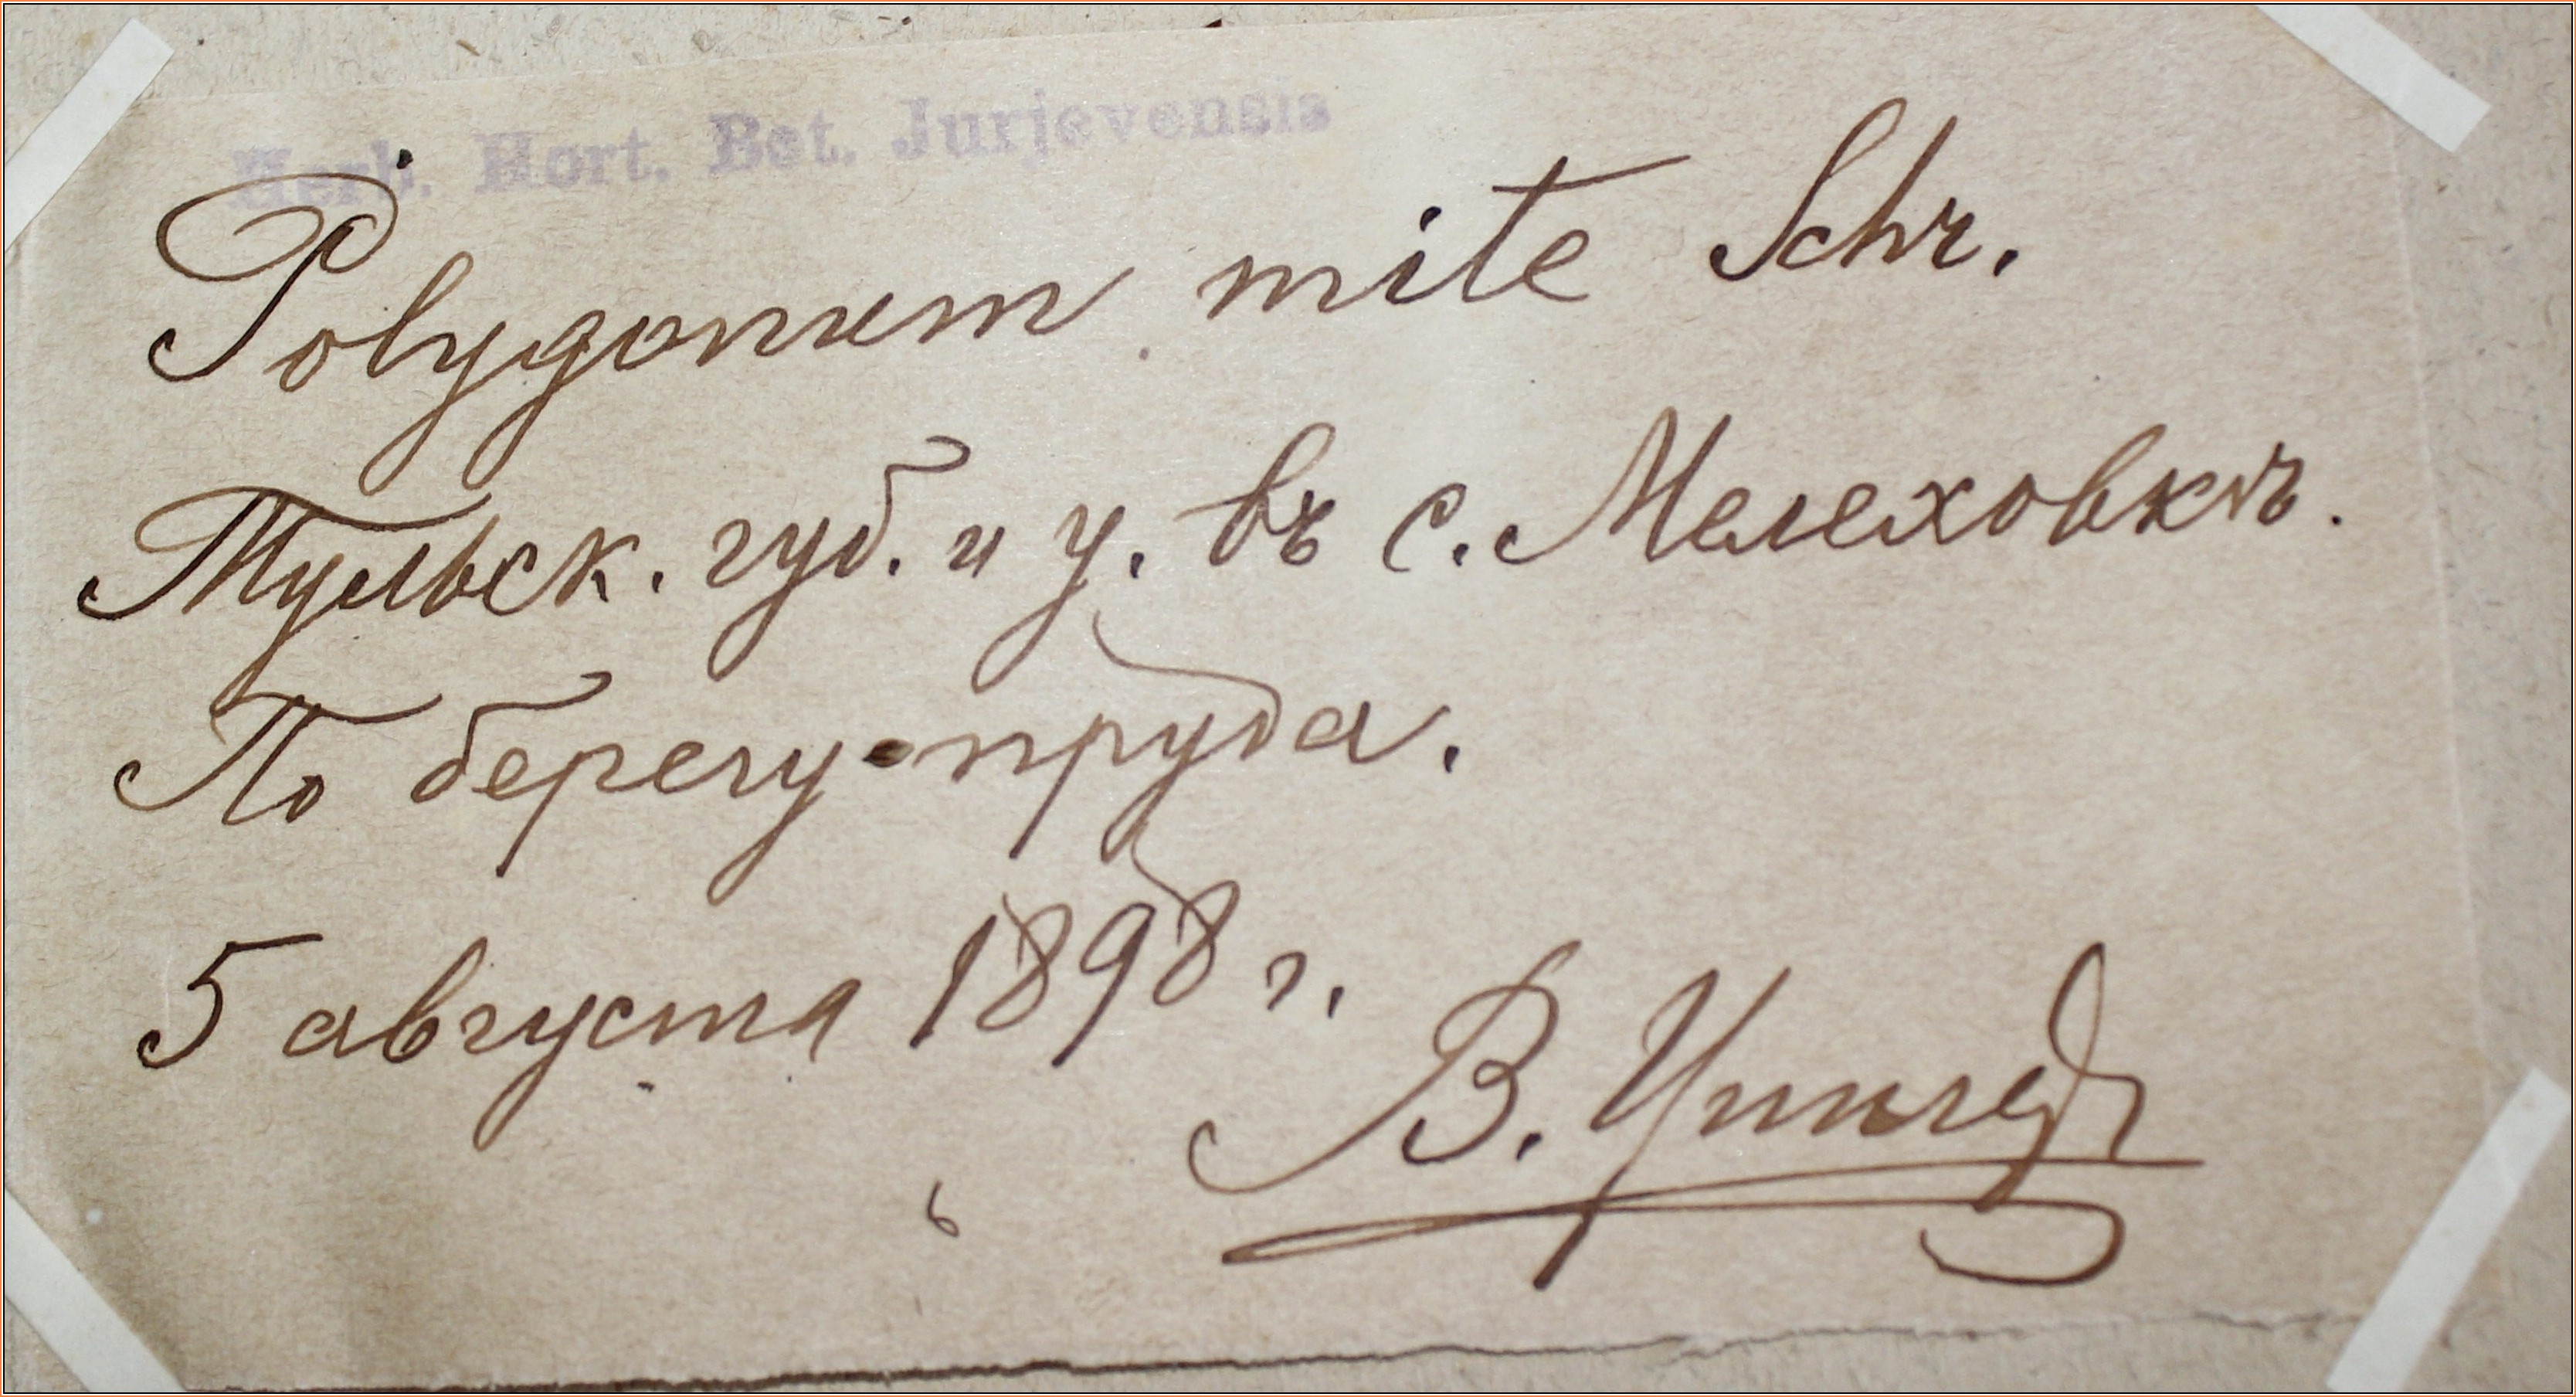 Herb. Hort. Bot. Jurjevensis
Polygonum mite Schr.
Тульск. губ. и у. въ с. Мелеховкѣ.
По берегу пруда.
5 августа 1898 г.
В. Цингеръ